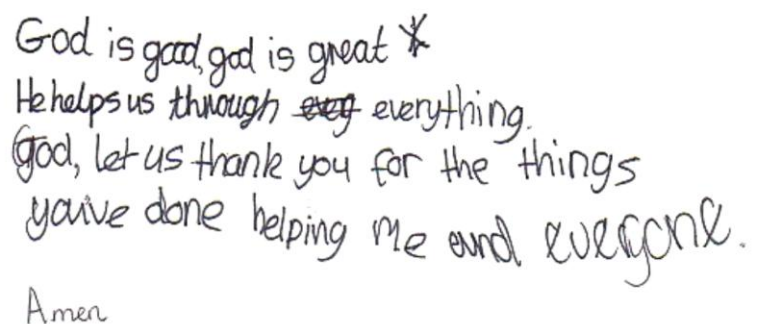 God is good, god is great *
He helps us through everything.
God, let us thank you for the things
you've done helping me and everyone.
Amen